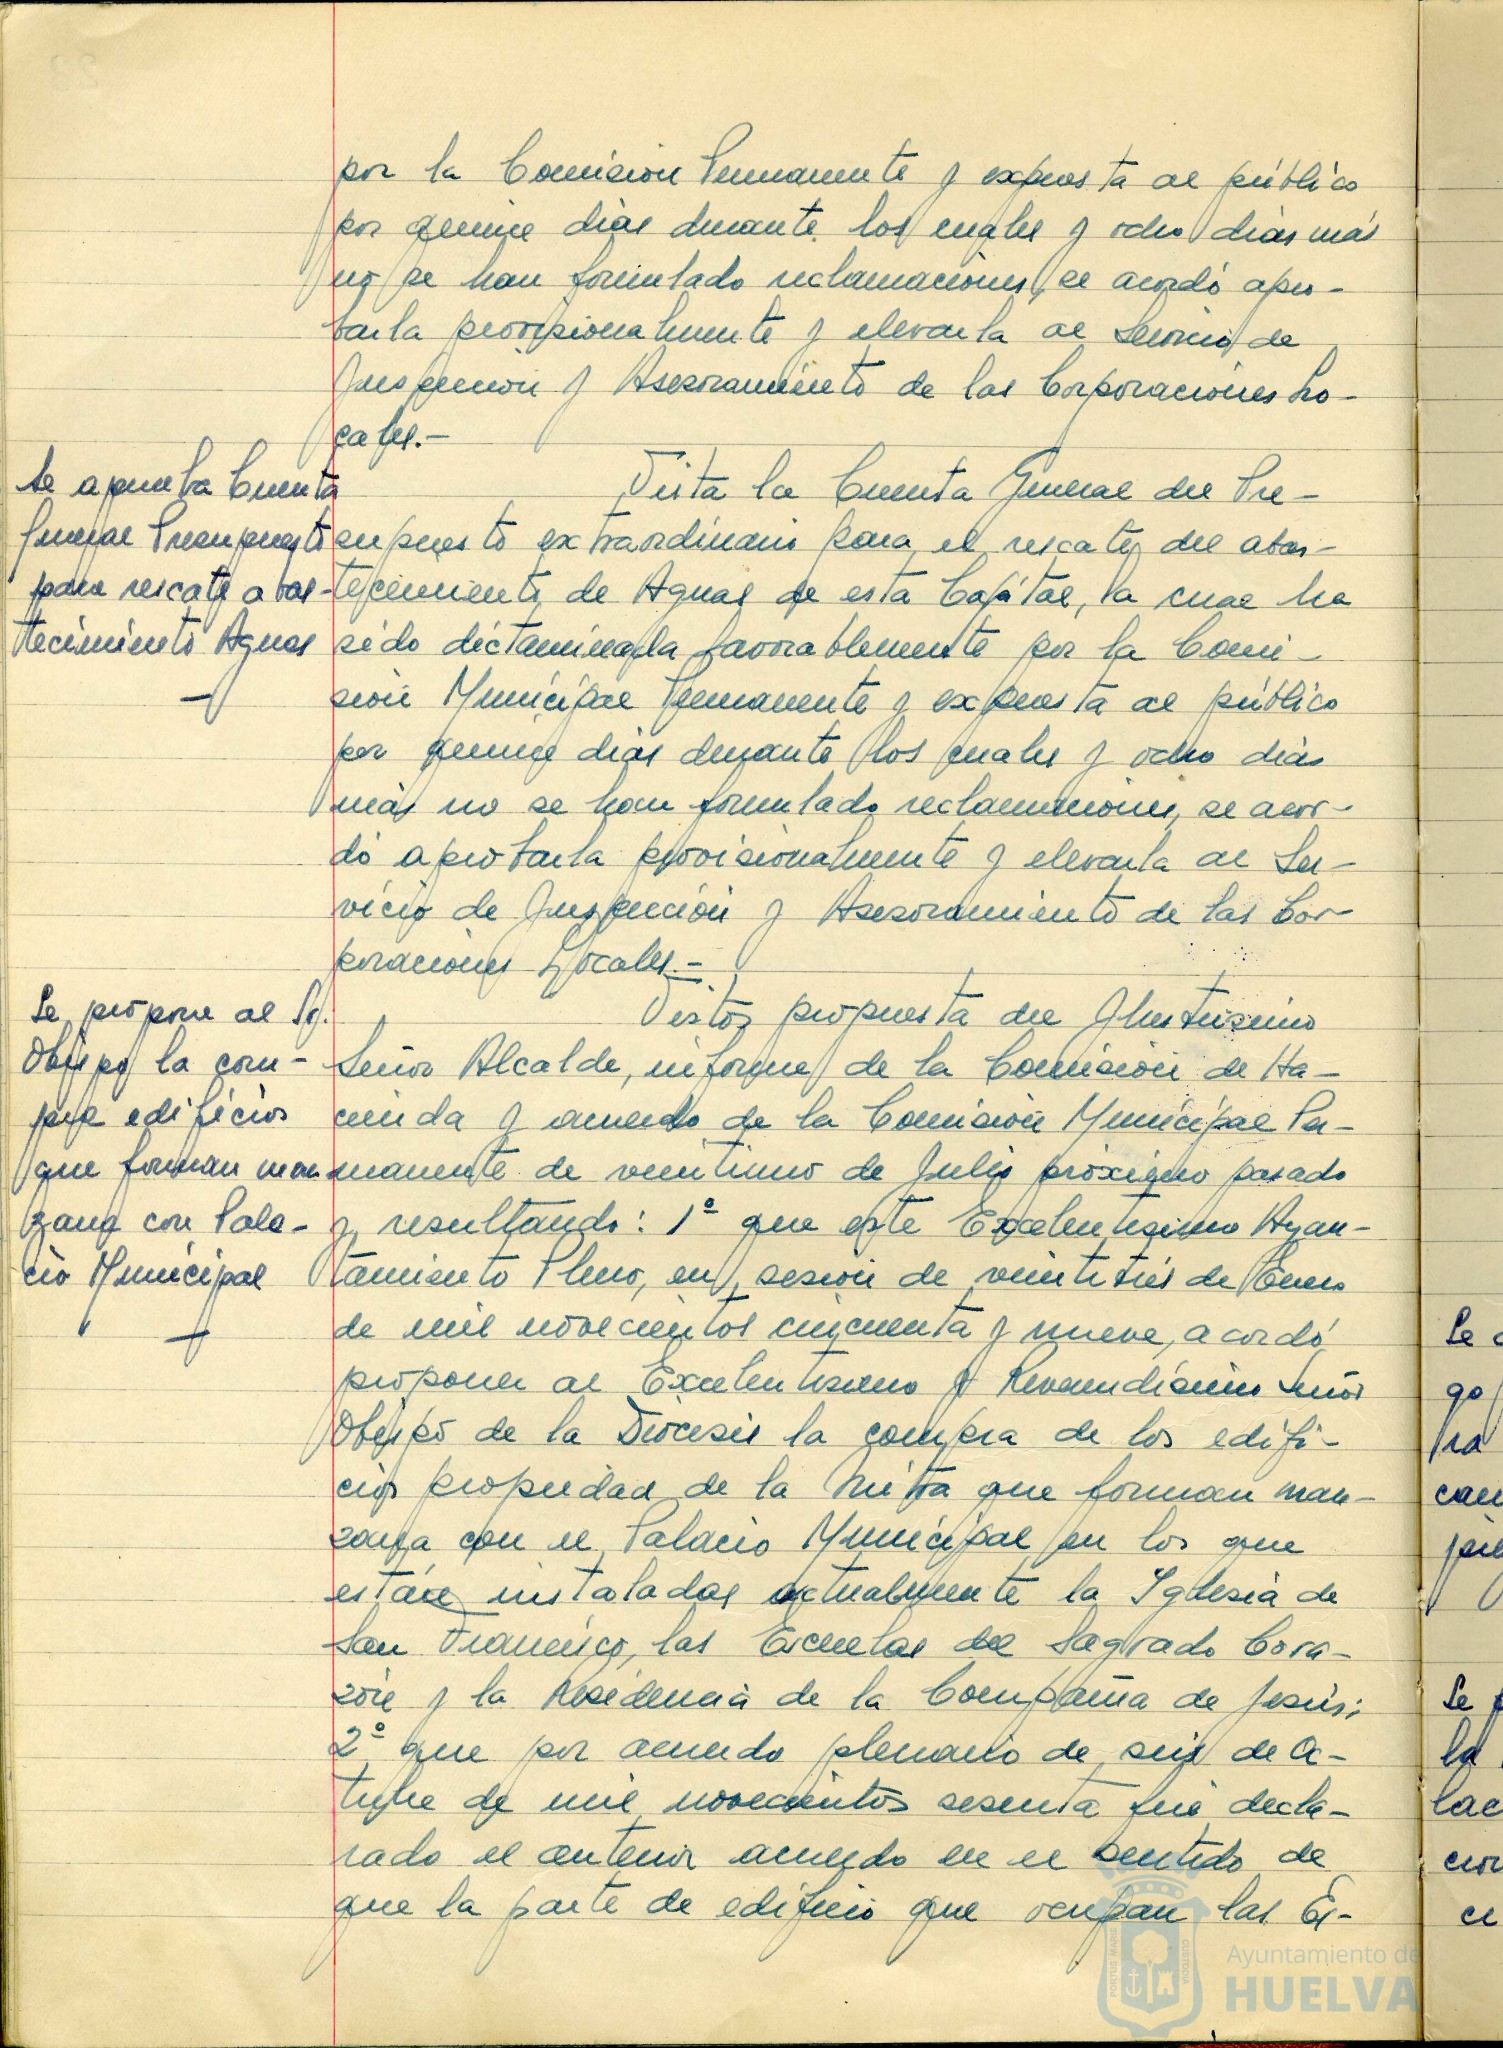 por la Comisión Permanente y expuesta al público
por quince días durante los cuales y ocho días más
no se han formulado reclamaciones, se acordó apro-
barla provisionalmente y elevarla al Servicio de
Inspección y Asesoramiento de las Corporaciones Lo-
cales.-
Se aprueba Cuenta
General Presupuesto
para rescate abas-
tecimiento Aguas
Vista la Cuenta General del Pre-
supuesto extraordinario para el rescate del abas-
tecimiento de Aguas de esta Capital, la cual ha
sido dictaminada favorablemente por la Comi-
sión Municipal Permanente y expuesta al público
por quince días durante los cuales y ocho días
más no se han formulado reclamaciones, se acor-
dó aprobarla provisionalmente y elevarla al Ser-
vicio de Inspección y Asesoramiento de las Cor-
poraciones Locales.-
Se propone al Sr.
Obispo la com-
pra edificios
que forman man
zana con Pala-
cio Municipal
Vistos propuesta del Ilustrísimo
Señor Alcalde, informe de la Comisión de Ha-
cienda y acuerdo de la Comisión Municipal Per-
manente de veintiuno de Julio próximo pasado
y resultando: 1º que este Excelentísimo Ayun-
tamiento Pleno, en sesión de veintitrés de Enero
de mil novecientos cincuenta y nueve, acordó
proponer al Excelentísimo y Reverendísimo Señor
Obispo de la Diócesis la compra de los edifi-
cios propiedad de la Mitra que forman man-
zana con el Palacio Municipal en los que
están instaladas actualmente la Iglesia de
San Francisco, las Escuelas del Sagrado Cora-
zón y la Residencia de la Compañía de Jesús;
2º que por acuerdo plenario de seis de Oc-
tubre de mil novecientos sesenta fué decla-
rado el anterior acuerdo en el sentido de
que la parte de edificio que ocupan las Es-
Se
go
ra
can
Se
la
lac
cion
Ayuntamiento de
HUELVA